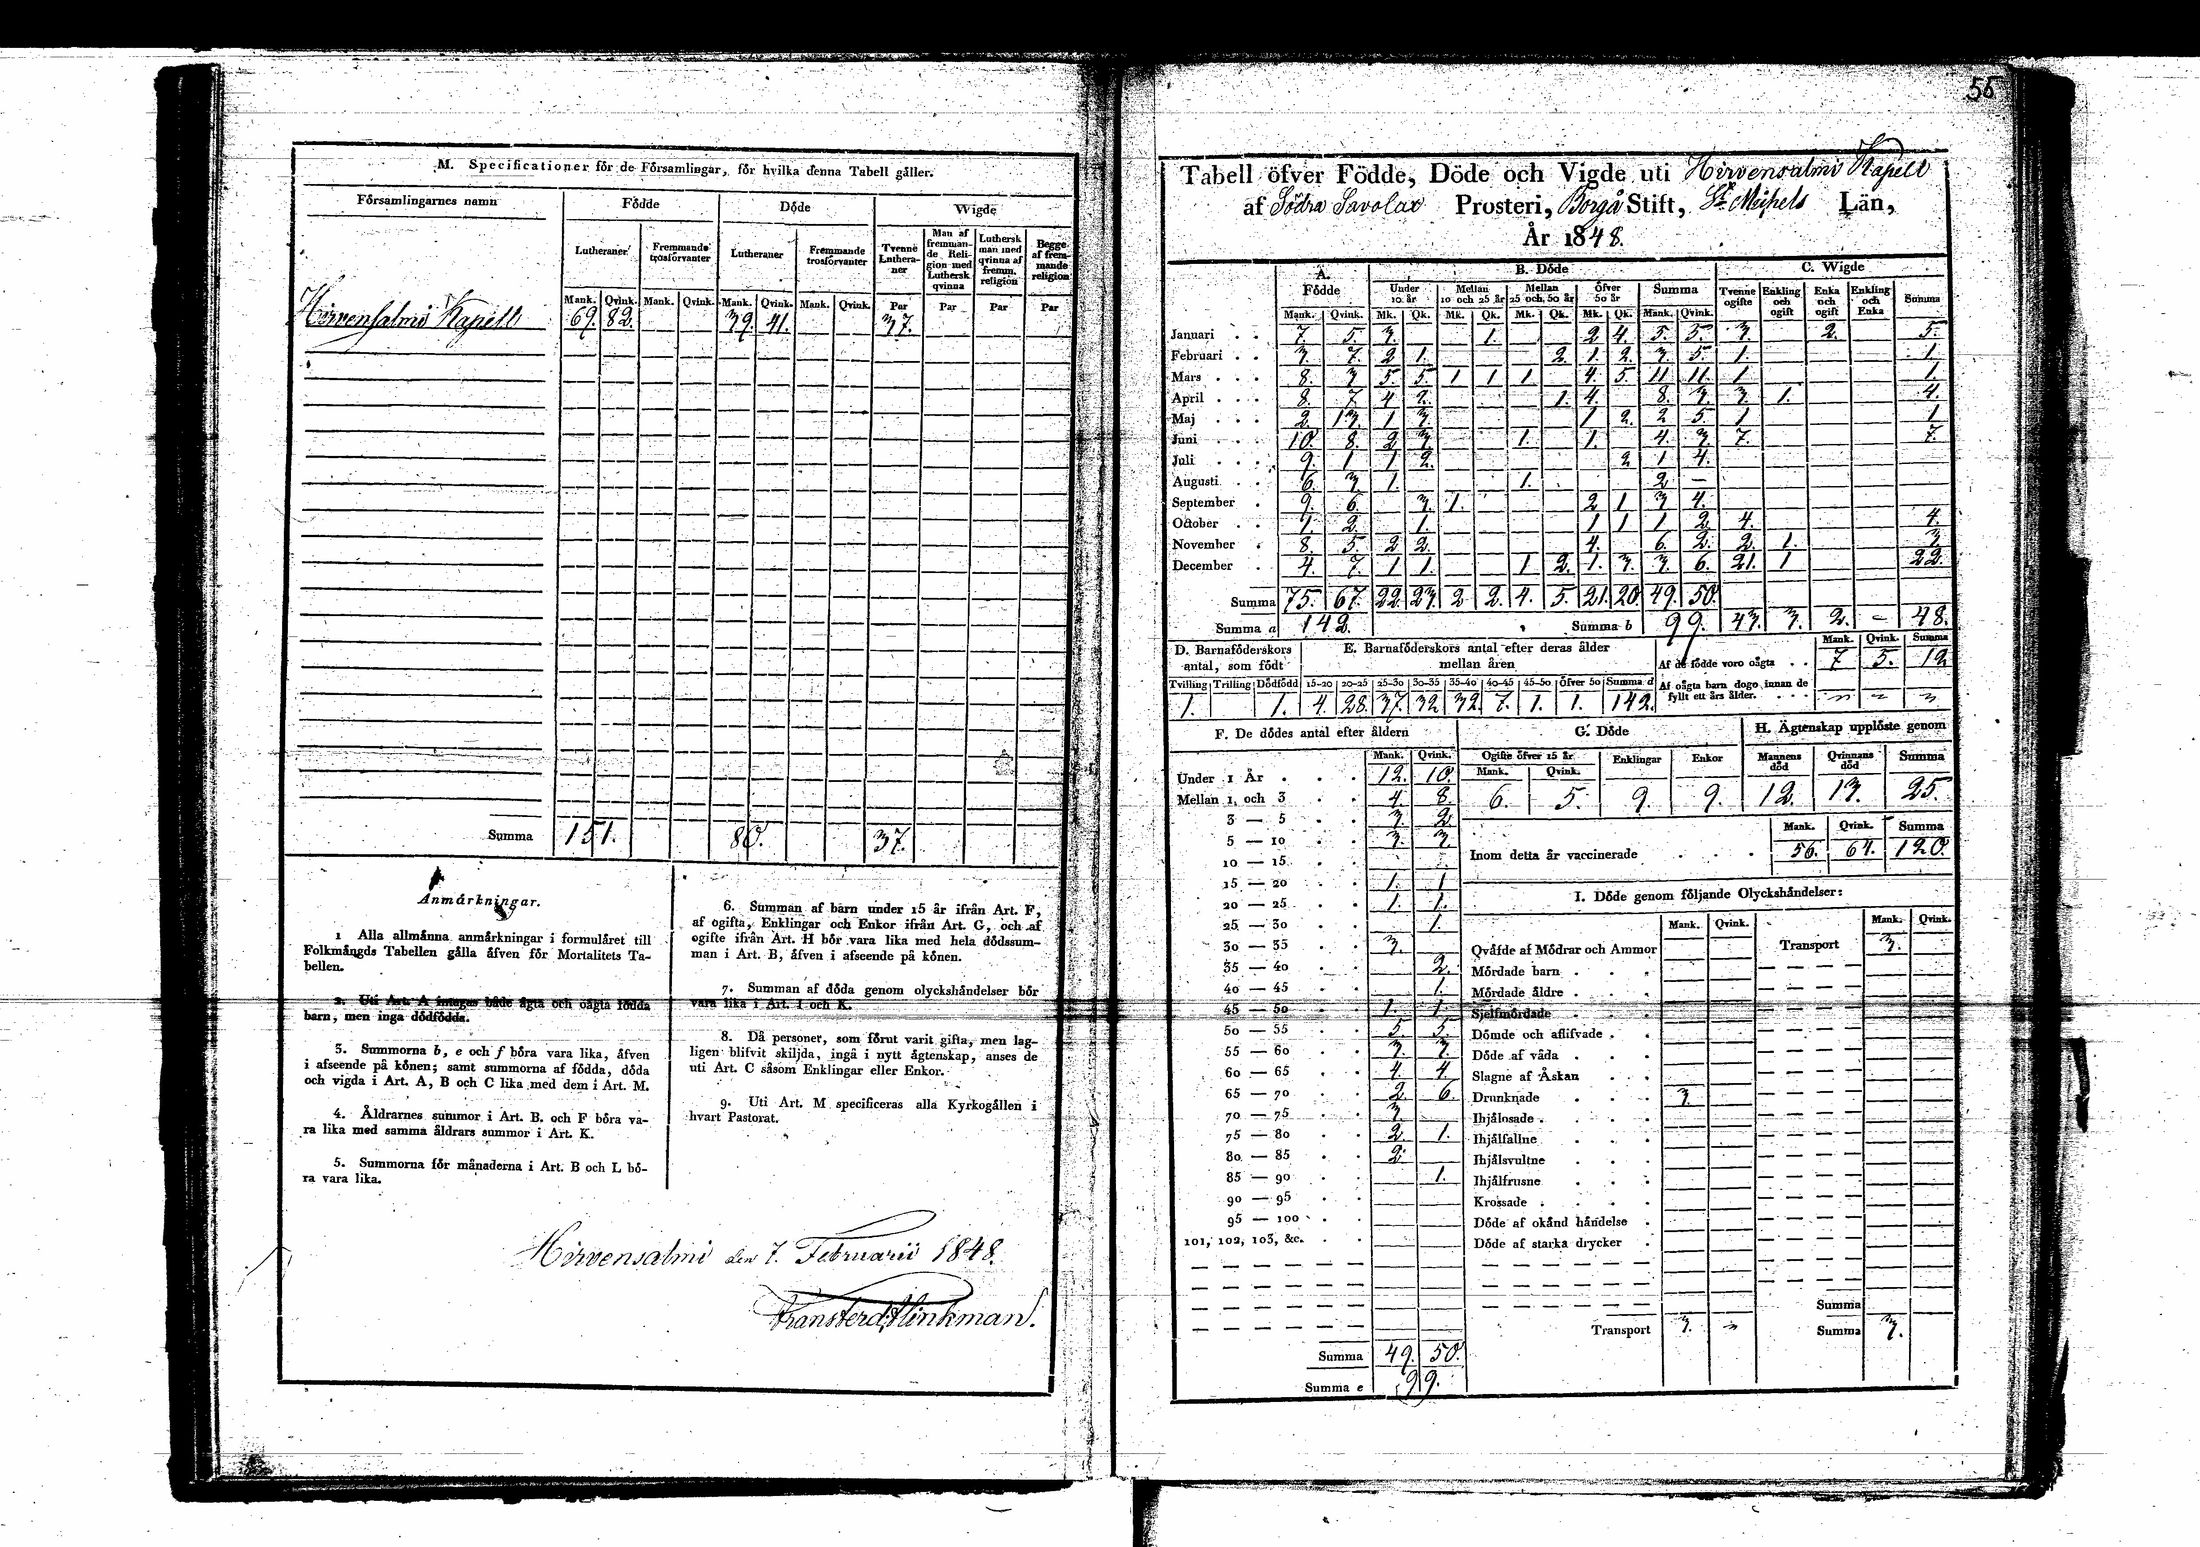 M. Specificationer för de Församlingar, för hvilka denna Tabell gäller.
Församlingarnes namn Födde Döde Wigde
Lutheraner Fremmande trosförvanter Lutheraner Fremmande trosförvanter Tvenne Lutheraner Man af fremmande Religion med Luthersk qvinna Luthersk man med qvinna af fremm. religion Begge af fremmande religion
Mank. Qvink. Mank. Qvink. Mank. Qvink. Mank. Qvink. Par Par Par Par
Hirvensalmi Kapell 69. 82. 39. 41. 37.
Summa 151. 80. 37.
Anmärkningar.
1 Alla allmänna anmärkningar i formuläret till
Folkmängds Tabellen gälla äfven för Mortalitets Ta-
bellen.
2. Uti Art. A intagas både ägta och oägta födda
barn, men inga dödfödda.
3. Summorna b, e och f böra vara lika, äfven
i afseende på könen; samt summorna af födda, döda
och vigda i Art. A, B och C lika med dem i Art. M.
4. Åldrarnes summor i Art. B. och F böra va-
ra lika med samma åldrars summor i Art. K.
5. Summorna för månaderna i Art. B och L bö-
ra vara lika.
6. Summan af barn under 15 år ifrån Art. F,
af ogifta, Enklingar och Enkor ifrån Art. G, och af
ogifte ifrån Art. H bör vara lika med hela dödssum-
man i Art. B, äfven i afseende på könen.
7. Summan af döda genom olyckshändelser bör
vara lika i Art. I och K.
8. Då personer, som förut varit gifta, men lag-
ligen blifvit skiljda, ingå i nytt ägtenskap, anses de
uti Art. C såsom Enklingar eller Enkor.
9. Uti Art. M specificeras alla Kyrkogällen i
hvart Pastorat.
Hirvensalmi den 7. Februarii 1848.
55
Tabell öfver Födde, Döde och Vigde uti Hirvensalmi Kapell
af Södra Savolax Prosteri, Borgå Stift, St Michels Län,
År 1848.
A. Födde B. Döde C. Wigde
Under 10 år Mellan 10 och 25 år Mellan 25 och 50 år Öfver 50 år Summa Tvenne ogifte Enkling och ogift Enka och ogift Enkling och Enka Summa
Mank. Qvink. Mk. Qk. Mk. Qk. Mk. Qk. Mk. Qk. Mank. Qvink.
Januari 7. 5. 3. 1. 2 4. 5. 5. 3. 2. 5.
Februari 3. 7. 2 1. 2. 1. 2. 3. 5. 1. 1.
Mars 8. 3 5. 5. 1 1 1. 4. 5. 11 11. 1. 1.
April 8. 7. 4 2. 1. 4. 8. 3. 3. 1. 4.
Maj 2. 13. 1 3. 1 2. 2 5. 1 1
Juni 10. 8. 2 3. 1. 1. 4. 3. 7. 7.
Juli 9. 1 1 2. 2 1 4.
Augusti 6. 3 1. 1. 2 –
September 9. 6. 3 1. 2 1 3 4.
October 1. 2. 1. 1 1 1 2. 4. 4.
November 8. 5. 2 2. 4. 6. 2. 2. 1. 3.
December 4. 7. 1 1. 1 2. 1. 3. 3. 6. 21. 1 22.
Summa 75. 67. 22. 23. 2 2. 4. 5. 21. 20. 49. 50.
Summa a 142. Summa b 99. 43. 3. 2. – 48.
D. Barnaföderskors antal, som födt E. Barnaföderskors antal efter deras ålder mellan åren
Tvilling Trilling Dödfödd 15-20 20-25 25-30 30-35 35-40 40-45 45-50 Öfver 50 Summa d
1. 1. 4. 28. 37. 32. 32. 7. 1. 1. 142.
Mank. Qvink. Summa
Af de födde voro oägta 7 5. 12
Af oägta barn dogo innan de fyllt ett års ålder.
F. De dödes antal efter åldern
Mank. Qvink.
Under 1 År 12. 10.
Mellan 1 och 3 4. 8.
3 — 5 3. 2.
5 — 10 3. 3.
10 — 15
15 — 20 1. 1
20 — 25 1. 1.
25 — 30 1.
30 — 35 3.
35 — 40 2.
40 — 45 1.
45 — 50 1. 1.
50 — 55 5. 5.
55 — 60 3. 3.
60 — 65 4. 4.
65 — 70 2. 6.
70 — 75 3
75 — 80 2. 1.
80 — 85 2.
85 — 90 1.
90 — 95
95 — 100
101, 102, 103, &c.
Summa 49. 50.
Summa e 99.
G. Döde
Ogifte öfver 15 år Enklingar Enkor
Mank. Qvink.
6. 5. 9. 9.
H. Ägtenskap upplöste genom
Mannens död Qvinnans död Summa
12. 13. 25.
Mank. Qvink. Summa
Inom detta år vaccinerade 56. 64. 120.
I. Döde genom följande Olyckshändelser:
Mank. Qvink. Mank. Qvink.
Qväfde af Mödrar och Ammor Transport 3.
Mördade barn
Mördade äldre
Sjelfmördade
Dömde och aflifvade
Döde af våda
Slagne af Åskan
Drunknade 3.
Ihjälosade
Ihjälfallne
Ihjälsvultne
Ihjälfrusne
Krossade
Döde af okänd händelse
Döde af starka drycker
Summa
Transport 3. – Summa 3.